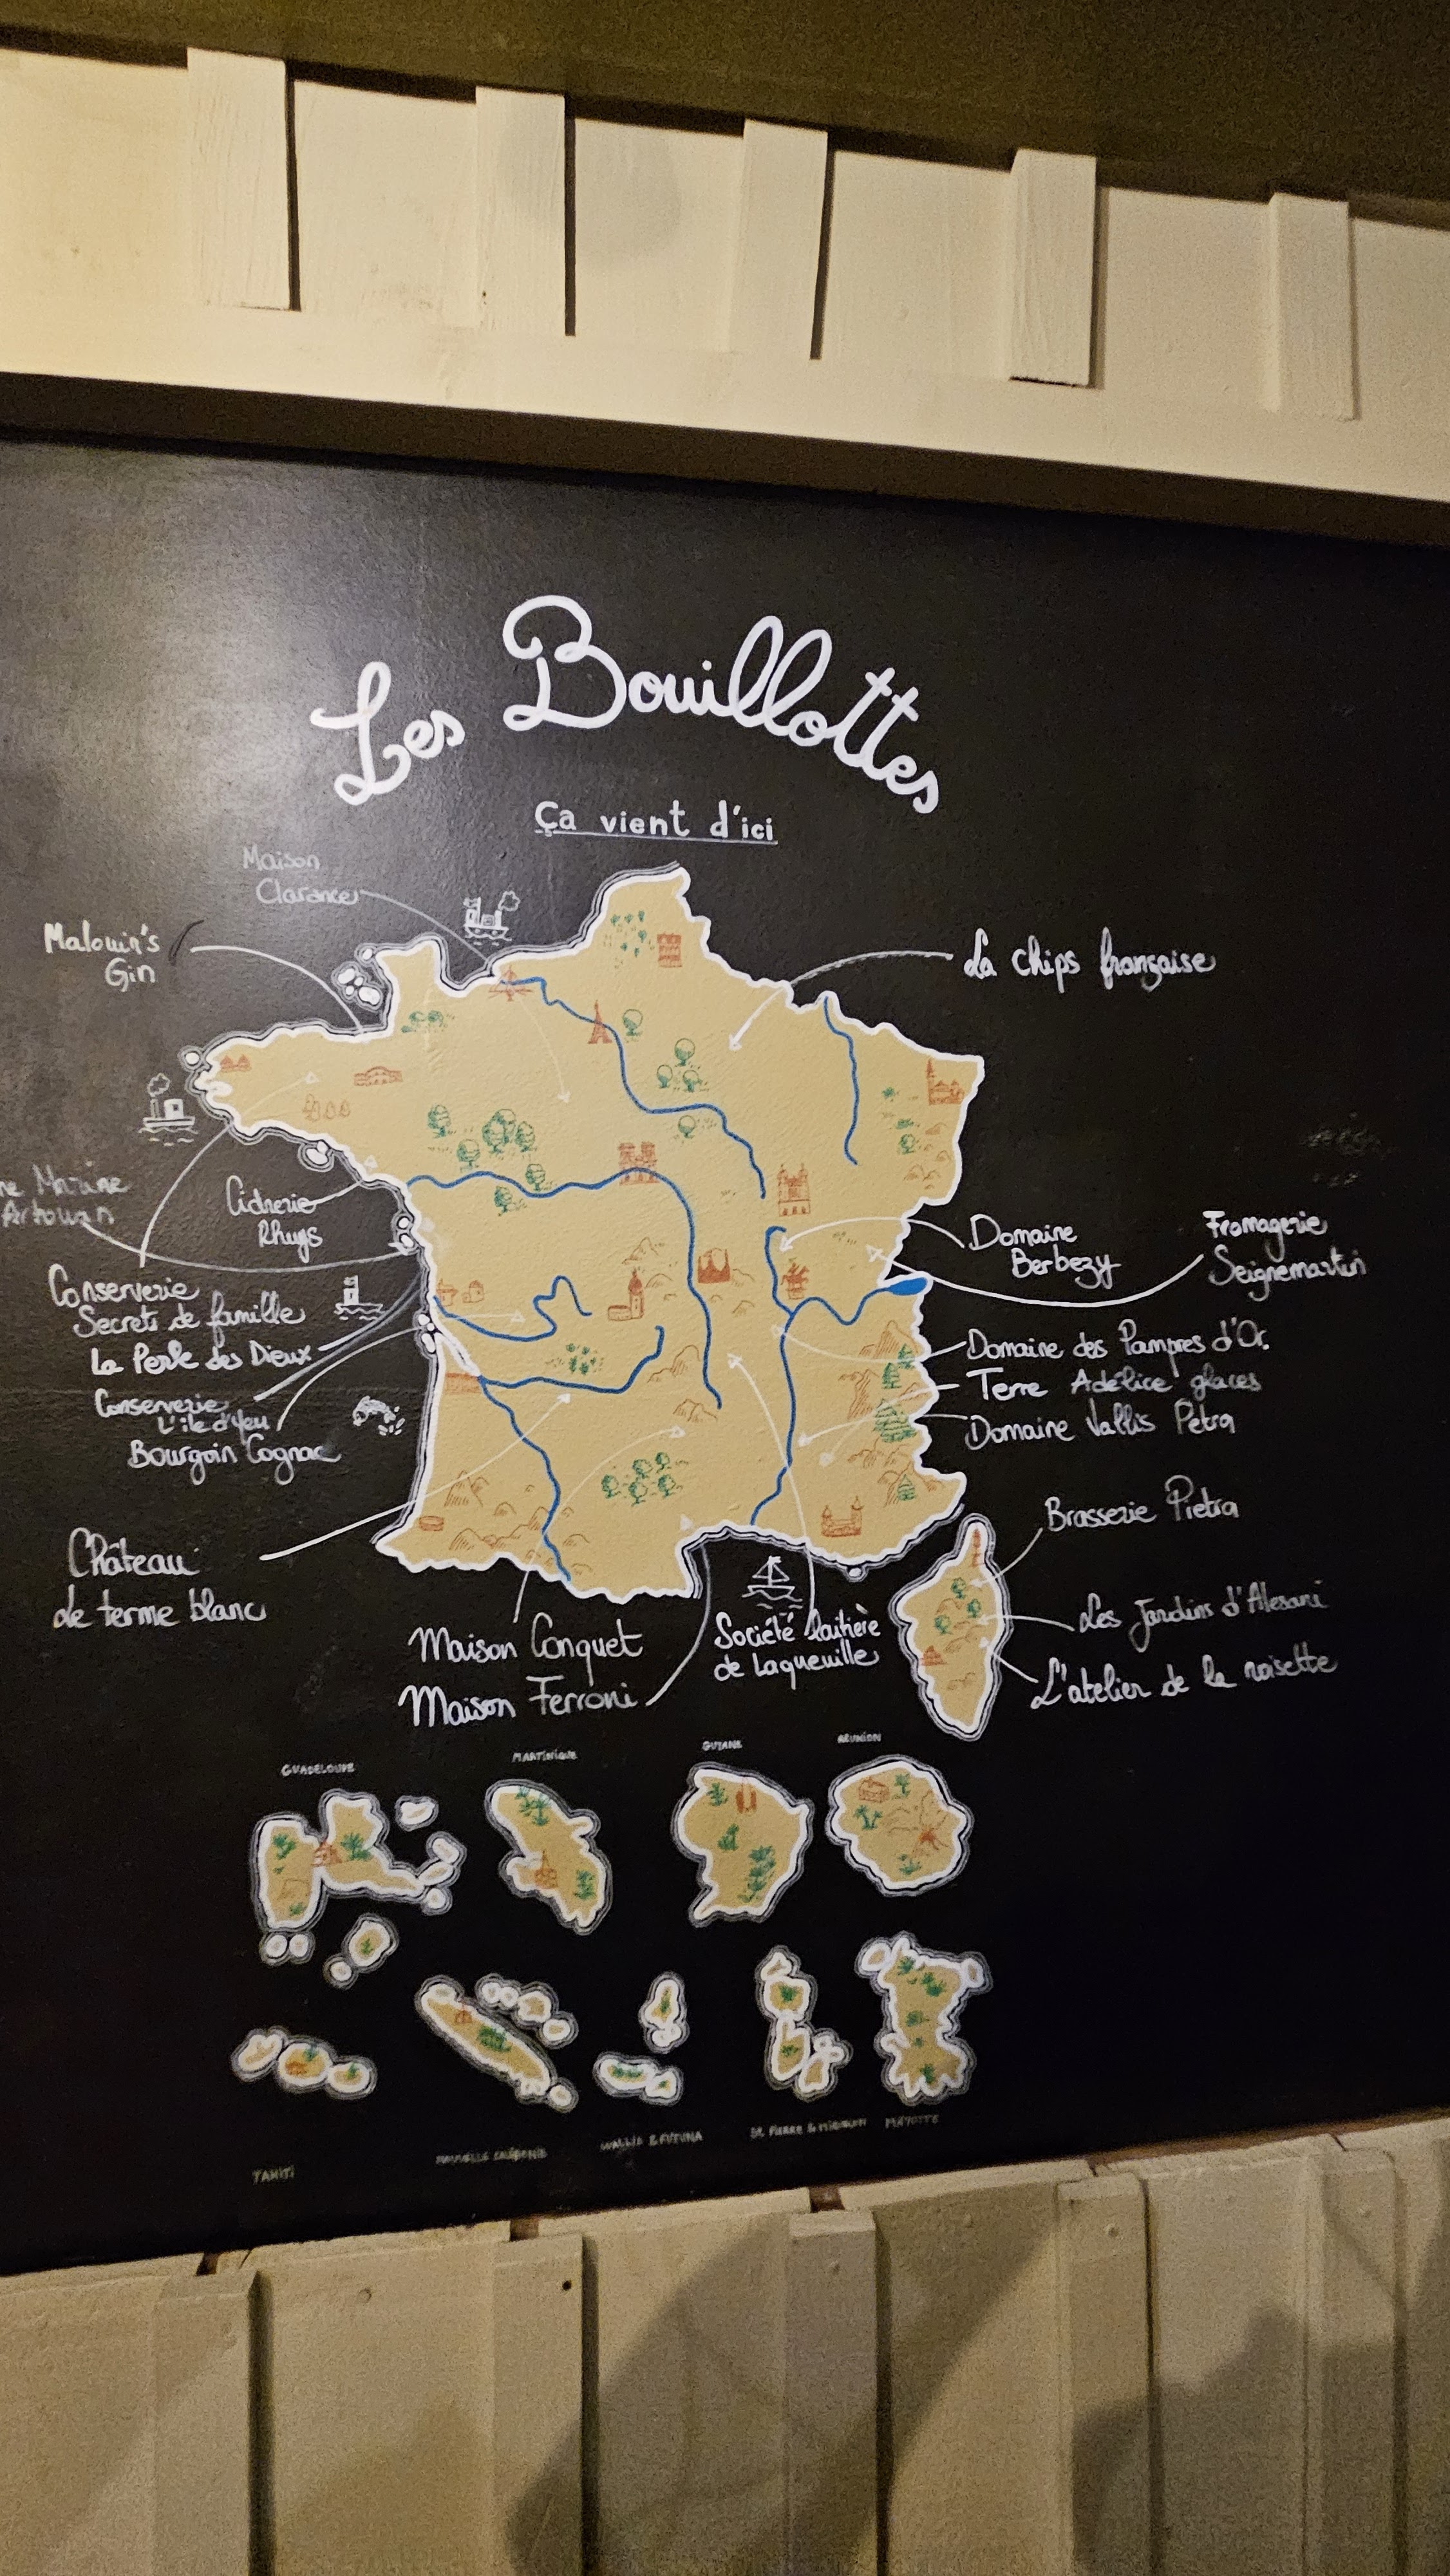 Les Bouillottes
Ça vient d'ici
Maison
Clarance
Malouin's
Gin
La chips française
Cidrerie
Rhuys
Conserverie
Secrets de famille
La Perle des Dieux
Conserverie
L'île d'Yeu
Bourgoin Cognac
Château
de terme blanc
Maison Conquet
Maison Ferroni
Société laitière
de Laqueuille
Domaine
Berbezy
Fromagerie
Seignemartin
Domaine des Pampres d'Or
Terre Adélice glaces
Domaine Vallis Petra
Brasserie Pietra
Les Jardins d'Alesani
L'atelier de la noisette
GUADELOUPE
MARTINIQUE
GUYANE
RÉUNION
TAHITI
NOUVELLE CALÉDONIE
WALLIS & FUTUNA
ST PIERRE & MIQUELON
MAYOTTE